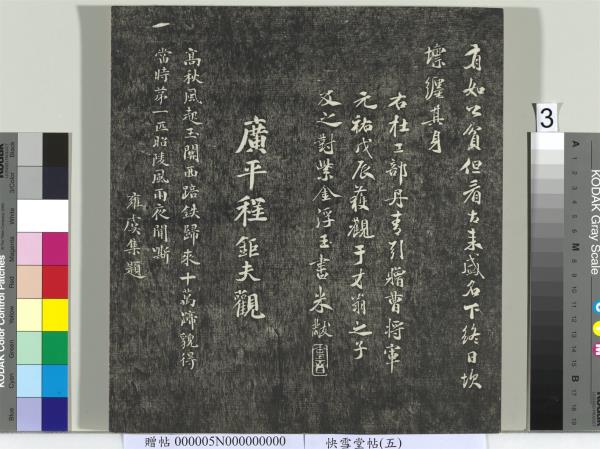 有如公貧但看古来盛名下終日坎
壈纒其身
右杜工部丹青引贈曹將軍
元祐戊辰菆觀于才翁之子
及之對紫金浮玉書米黻
廣平程鉅夫觀
高秋風起玉關西踣鉄歸來十萬蹄貌得
當時苐一匹昭陵風雨夜聞嘶
雍虞集題
3
KODAK Gray Scale
KODAK Color Control Patches
Blue
Cyan
Green
Yellow
Red
Magenta
White
3/Color
Black
A 1 2 3 4 5 6 M 8 9 10 11 12 13 14 15 B 17 18 19
贈帖 000005N000000000 快雪堂帖(五)